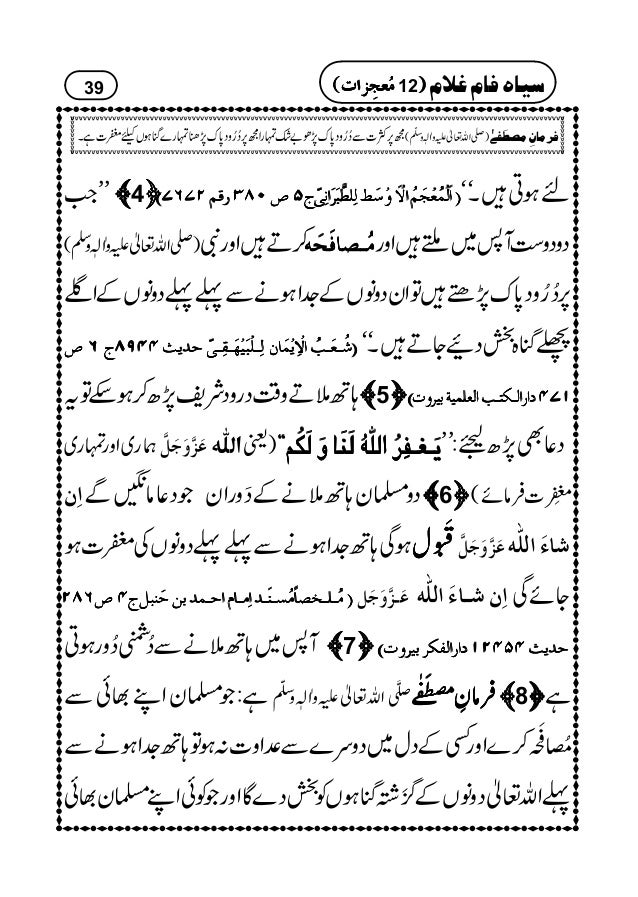 سیاہ فام غلام (12 مُعجِزات)
39
فرمانِ مصطَفٰے (صلی اللہ تعالیٰ علیہ والہٖ وسلّم) مجھ پر کثرت سے دُرُود پاک پڑھو بے شک تمہارا مجھ پر دُرُود پاک پڑھنا تمہارے گناہوں کیلئے مغفرت ہے۔
لئے ہوتی ہیں۔‘‘ (اَلْمُعْجَمُ الْاَوْسَط لِلطَّبَرَانِیّ ج۵ ص ۳۸۰ رقم ۷۶۷۲) ﴿4﴾ ’’جب
دو دوست آپس میں ملتے ہیں اور مُصافَحَہ کرتے ہیں اور نبی (صلی اللہ تعالیٰ علیہ والہٖ وسلّم)
پر دُرُود پاک پڑھتے ہیں تو ان دونوں کے جدا ہونے سے پہلے پہلے دونوں کے اگلے
پچھلے گناہ بخش دیئے جاتے ہیں۔‘‘ (شُعَبُ الْاِیْمَان لِلْبَیْہَقِیّ حدیث ۸۹۴۴ ج ۶ ص
۴۷۱ دارالکتب العلمیة بیروت) ﴿5﴾ ہاتھ ملاتے وقت درود شریف پڑھ کر ہو سکے تو یہ
دعا بھی پڑھ لیجئے: ’’یَغْفِرُ اللہُ لَنَا وَ لَکُم‘‘ (یعنی اللہ عَزَّوَجَلَّ ہماری اور تمہاری
مغفِرت فرمائے) ﴿6﴾ دو مسلمان ہاتھ ملانے کے دَوران جو دعا مانگیں گے اِن
شاءَ اللہ عَزَّوَجَلَّ قَبول ہو گی ہاتھ جدا ہونے سے پہلے پہلے دونوں کی مغفرت ہو
جائے گی اِن شاءَ اللہ عَزَّوَجَلَّ (مُلخصاً مُسنَد اِمام احمد بن حَنبل ج۴ ص ۲۸۶
حدیث ۱۲۴۵۴ دارالفکر بیروت) ﴿7﴾ آپس میں ہاتھ ملانے سے دُشمنی دُور ہوتی
ہے ﴿8﴾ فرمانِ مصطَفٰے صلَّی اللہ تعالیٰ علیہ والہٖ وسلّم ہے: جو مسلمان اپنے بھائی سے
مُصافَحَہ کرے اور کسی کے دل میں دوسرے سے عداوت نہ ہو تو ہاتھ جدا ہونے سے
پہلے اللہ تعالیٰ دونوں کے گزَشتہ گناہوں کو بخش دے گا اور جو کوئی اپنے مسلمان بھائی